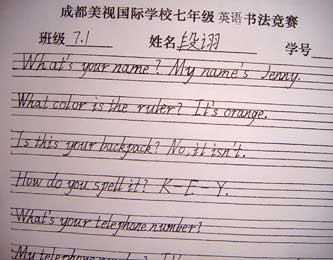 成都美视国际学校七年级 英语书法竞赛
班级 7.1 姓名 段诩 学号
What's your name? My name's Jenny.
What color is the ruler? It's orange.
Is this your backpack? No, it isn't.
How do you spell it? K-E-Y.
What's your telephone number?
My telephone number?